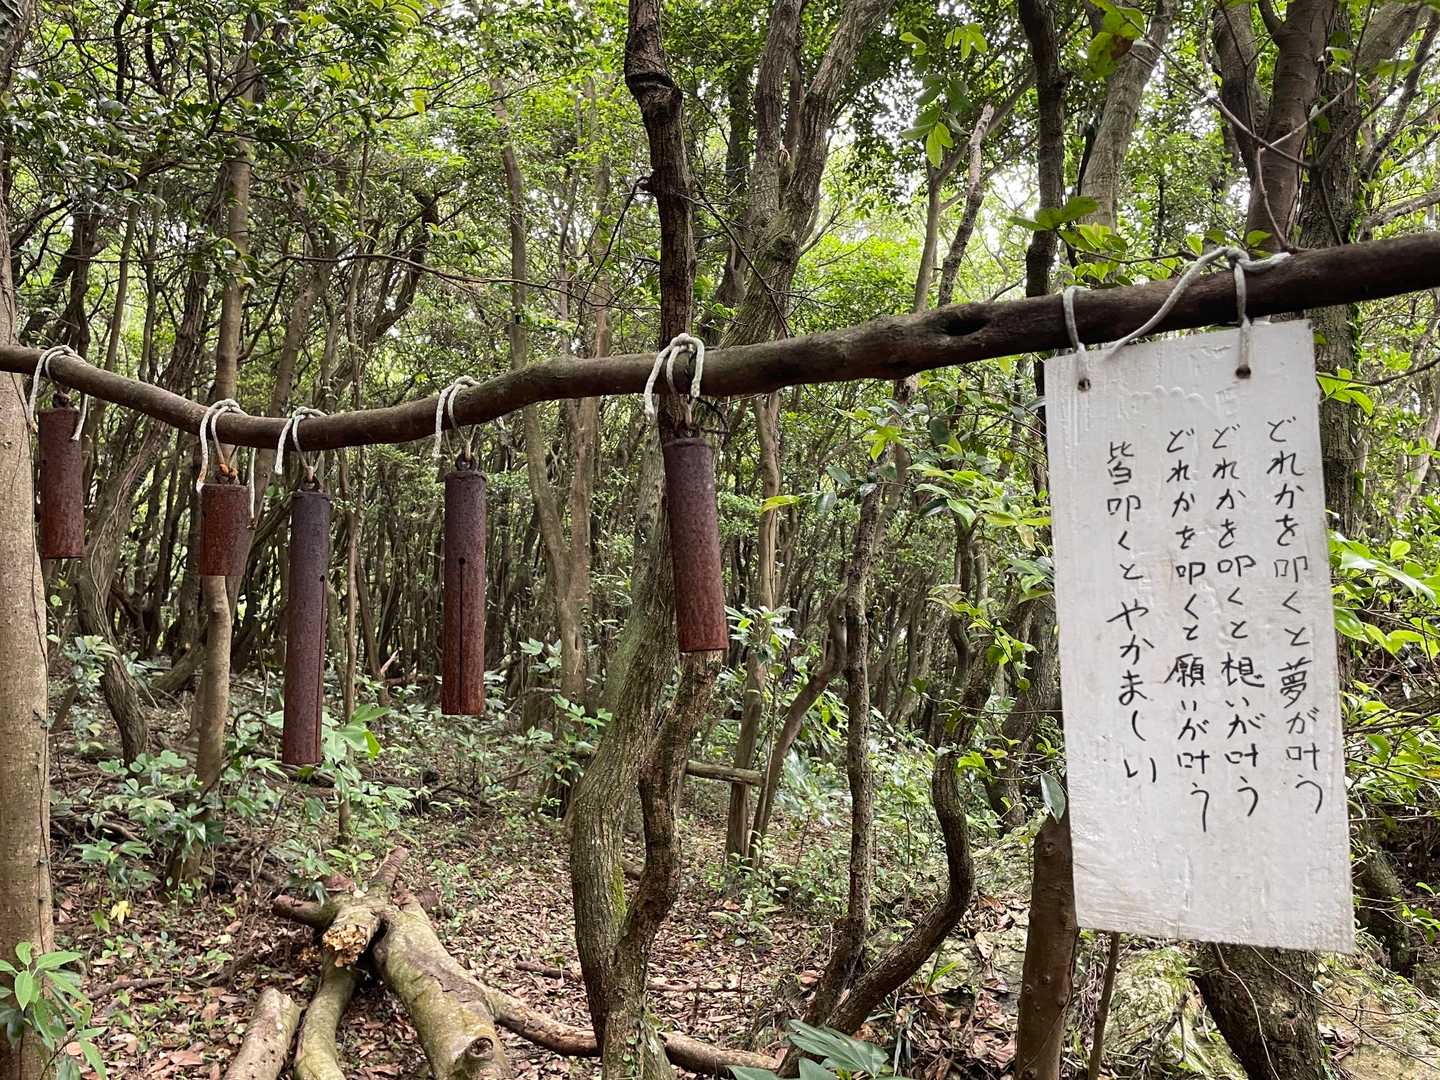 どれかを叩くと夢が叶う
どれかを叩くと想いが叶う
どれかを叩くと願いが叶う
皆叩くとやかましい